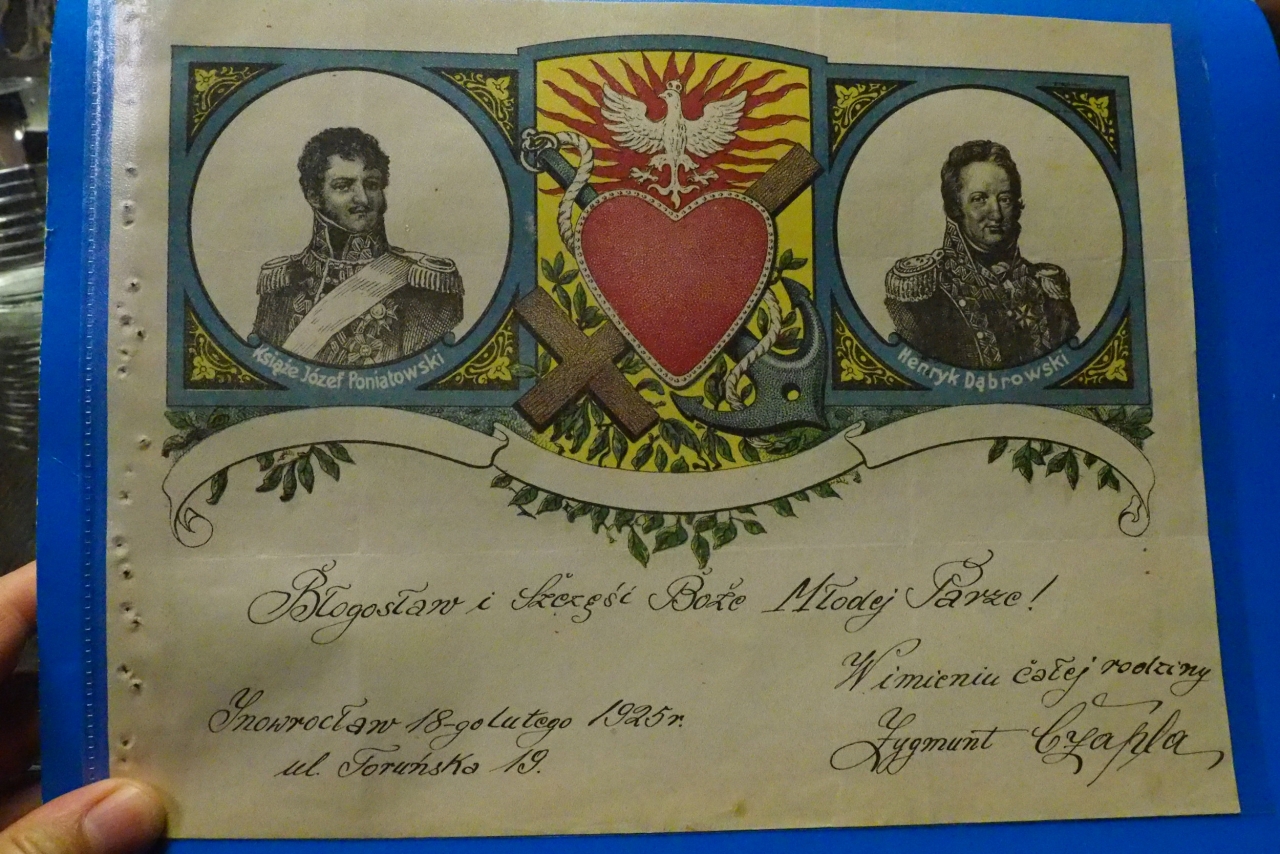 Książe Józef Poniatowski
Henryk Dąbrowski
Błogosław i Szczęść Boże Młodej Parze!
W imieniu całej rodziny
Zygmunt Czapla
Inowrocław 18-go lutego 1925r.
ul. Toruńska 19.